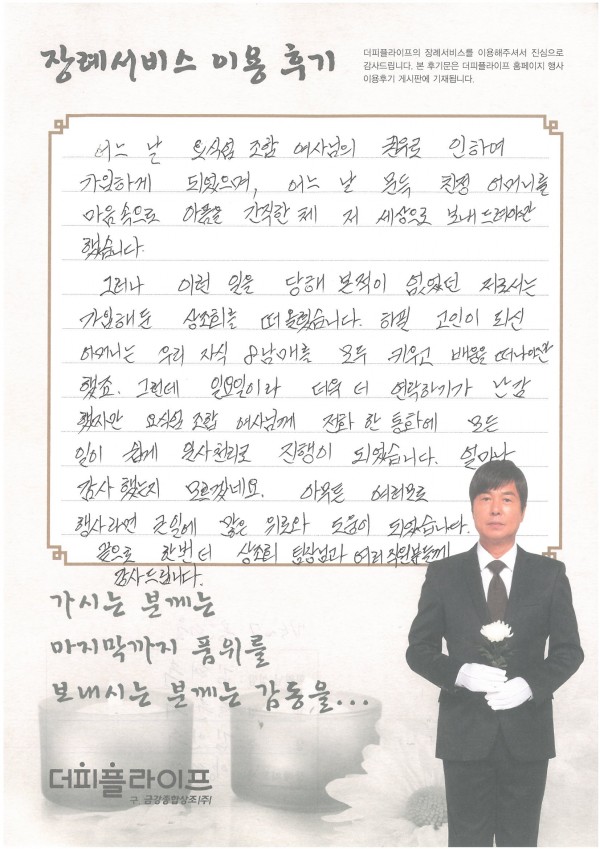 장례서비스 이용 후기
더피플라이프의 장례서비스를 이용해주셔서 진심으로
감사드립니다. 본 후기문은 더피플라이프 홈페이지 행사
이용후기 게시판에 기재됩니다.
어느 날 요식업 조합 여사님의 권유로 인하여
가입하게 되었으며, 어느 날 문득 친정 어머니를
마음속으로 아픔을 간직한 체 저 세상으로 보내 드려야만
했습니다.
그러나 이런 일을 당해 본적이 없었던 저로서는
가입해둔 상조회를 떠올렸습니다. 하필 고인이 되신
어머니는 우리 자식 8남매를 모두 키우고 배웅을 떠나야만
했죠. 그런데 일요일이라 더욱 더 연락하기가 난감
했지만 요식업 조합 여사님께 전화 한 통화에 모든
일이 쉽게 일사천리로 진행이 되었습니다. 얼마나
감사 했는지 모르겠네요. 아무튼 여러모로
행사라면 큰일에 많은 위로와 도움이 되었습니다.
끝으로 한번 더 상조회 팀장님과 여러 직원분들께
감사드립니다.
가시는 분께는
마지막까지 품위를
보내시는 분께는 감동을...
더피플라이프
구. 금강종합상조(주)